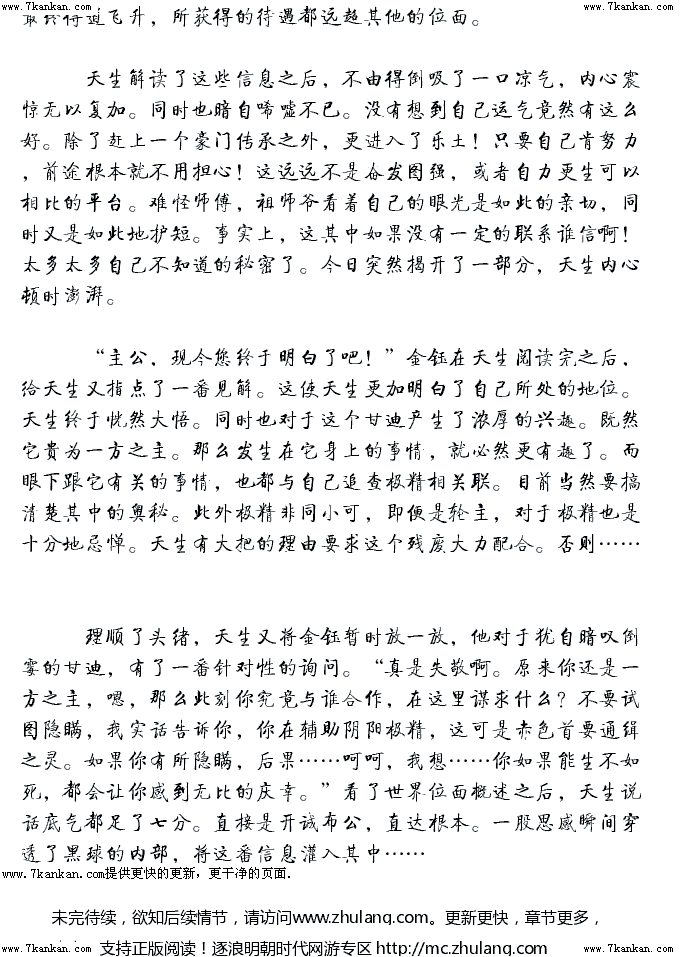 www.7kankan.com www.7kankan.com
最终得道飞升，所获得的待遇都远超其他的位面。
天生解读了这些信息之后，不由得倒吸了一口凉气，内心震
惊无以复加。同时也暗自唏嘘不已。没有想到自己运气竟然有这么
好。除了赶上一个豪门传承之外，更进入了乐土！只要自己肯努力
，前途根本就不用担心！这远远不是奋发图强，或者自力更生可以
相比的平台。难怪师傅，祖师爷看着自己的眼光是如此的亲切，同
时又是如此地护短。事实上，这其中如果没有一定的联系谁信啊！
太多太多自己不知道的秘密了。今日突然揭开了一部分，天生内心
顿时澎湃。
“主公，现今您终于明白了吧！”金钰在天生阅读完之后，
给天生又指点了一番见解。这使天生更加明白了自己所处的地位。
天生终于恍然大悟。同时也对于这个甘迪产生了浓厚的兴趣。既然
它贵为一方之主。那么发生在它身上的事情，就必然更有趣了。而
眼下跟它有关的事情，也都与自己追查极精相关联。目前当然要搞
清楚其中的奥秘。此外极精非同小可，即便是轮主，对于极精也是
十分地忌惮。天生有大把的理由要求这个残废大力配合。否则……
理顺了头绪，天生又将金钰暂时放一放，他对于犹自暗叹倒
霉的甘迪，有了一番针对性的询问。“真是失敬啊。原来你还是一
方之主，嗯，那么此刻你究竟与谁合作，在这里谋求什么？不要试
图隐瞒，我实话告诉你，你在辅助阴阳极精，这可是赤色首要通缉
之灵。如果你有所隐瞒，后果……呵呵，我想……你如果能生不如
死，都会让你感到无比的庆幸。”看了世界位面概述之后，天生说
话底气都足了七分。直接是开诚布公，直达根本。一股思感瞬间穿
透了黑球的内部，将这番信息灌入其中……
www.7kankan.com提供更快的更新，更干净的页面.
未完待续，欲知后续情节，请访问www.zhulang.com。更新更快，章节更多，
www.7kankan.com 支持正版阅读！逐浪明朝时代网游专区 http://mc.zhulang.com www.7kankan.com